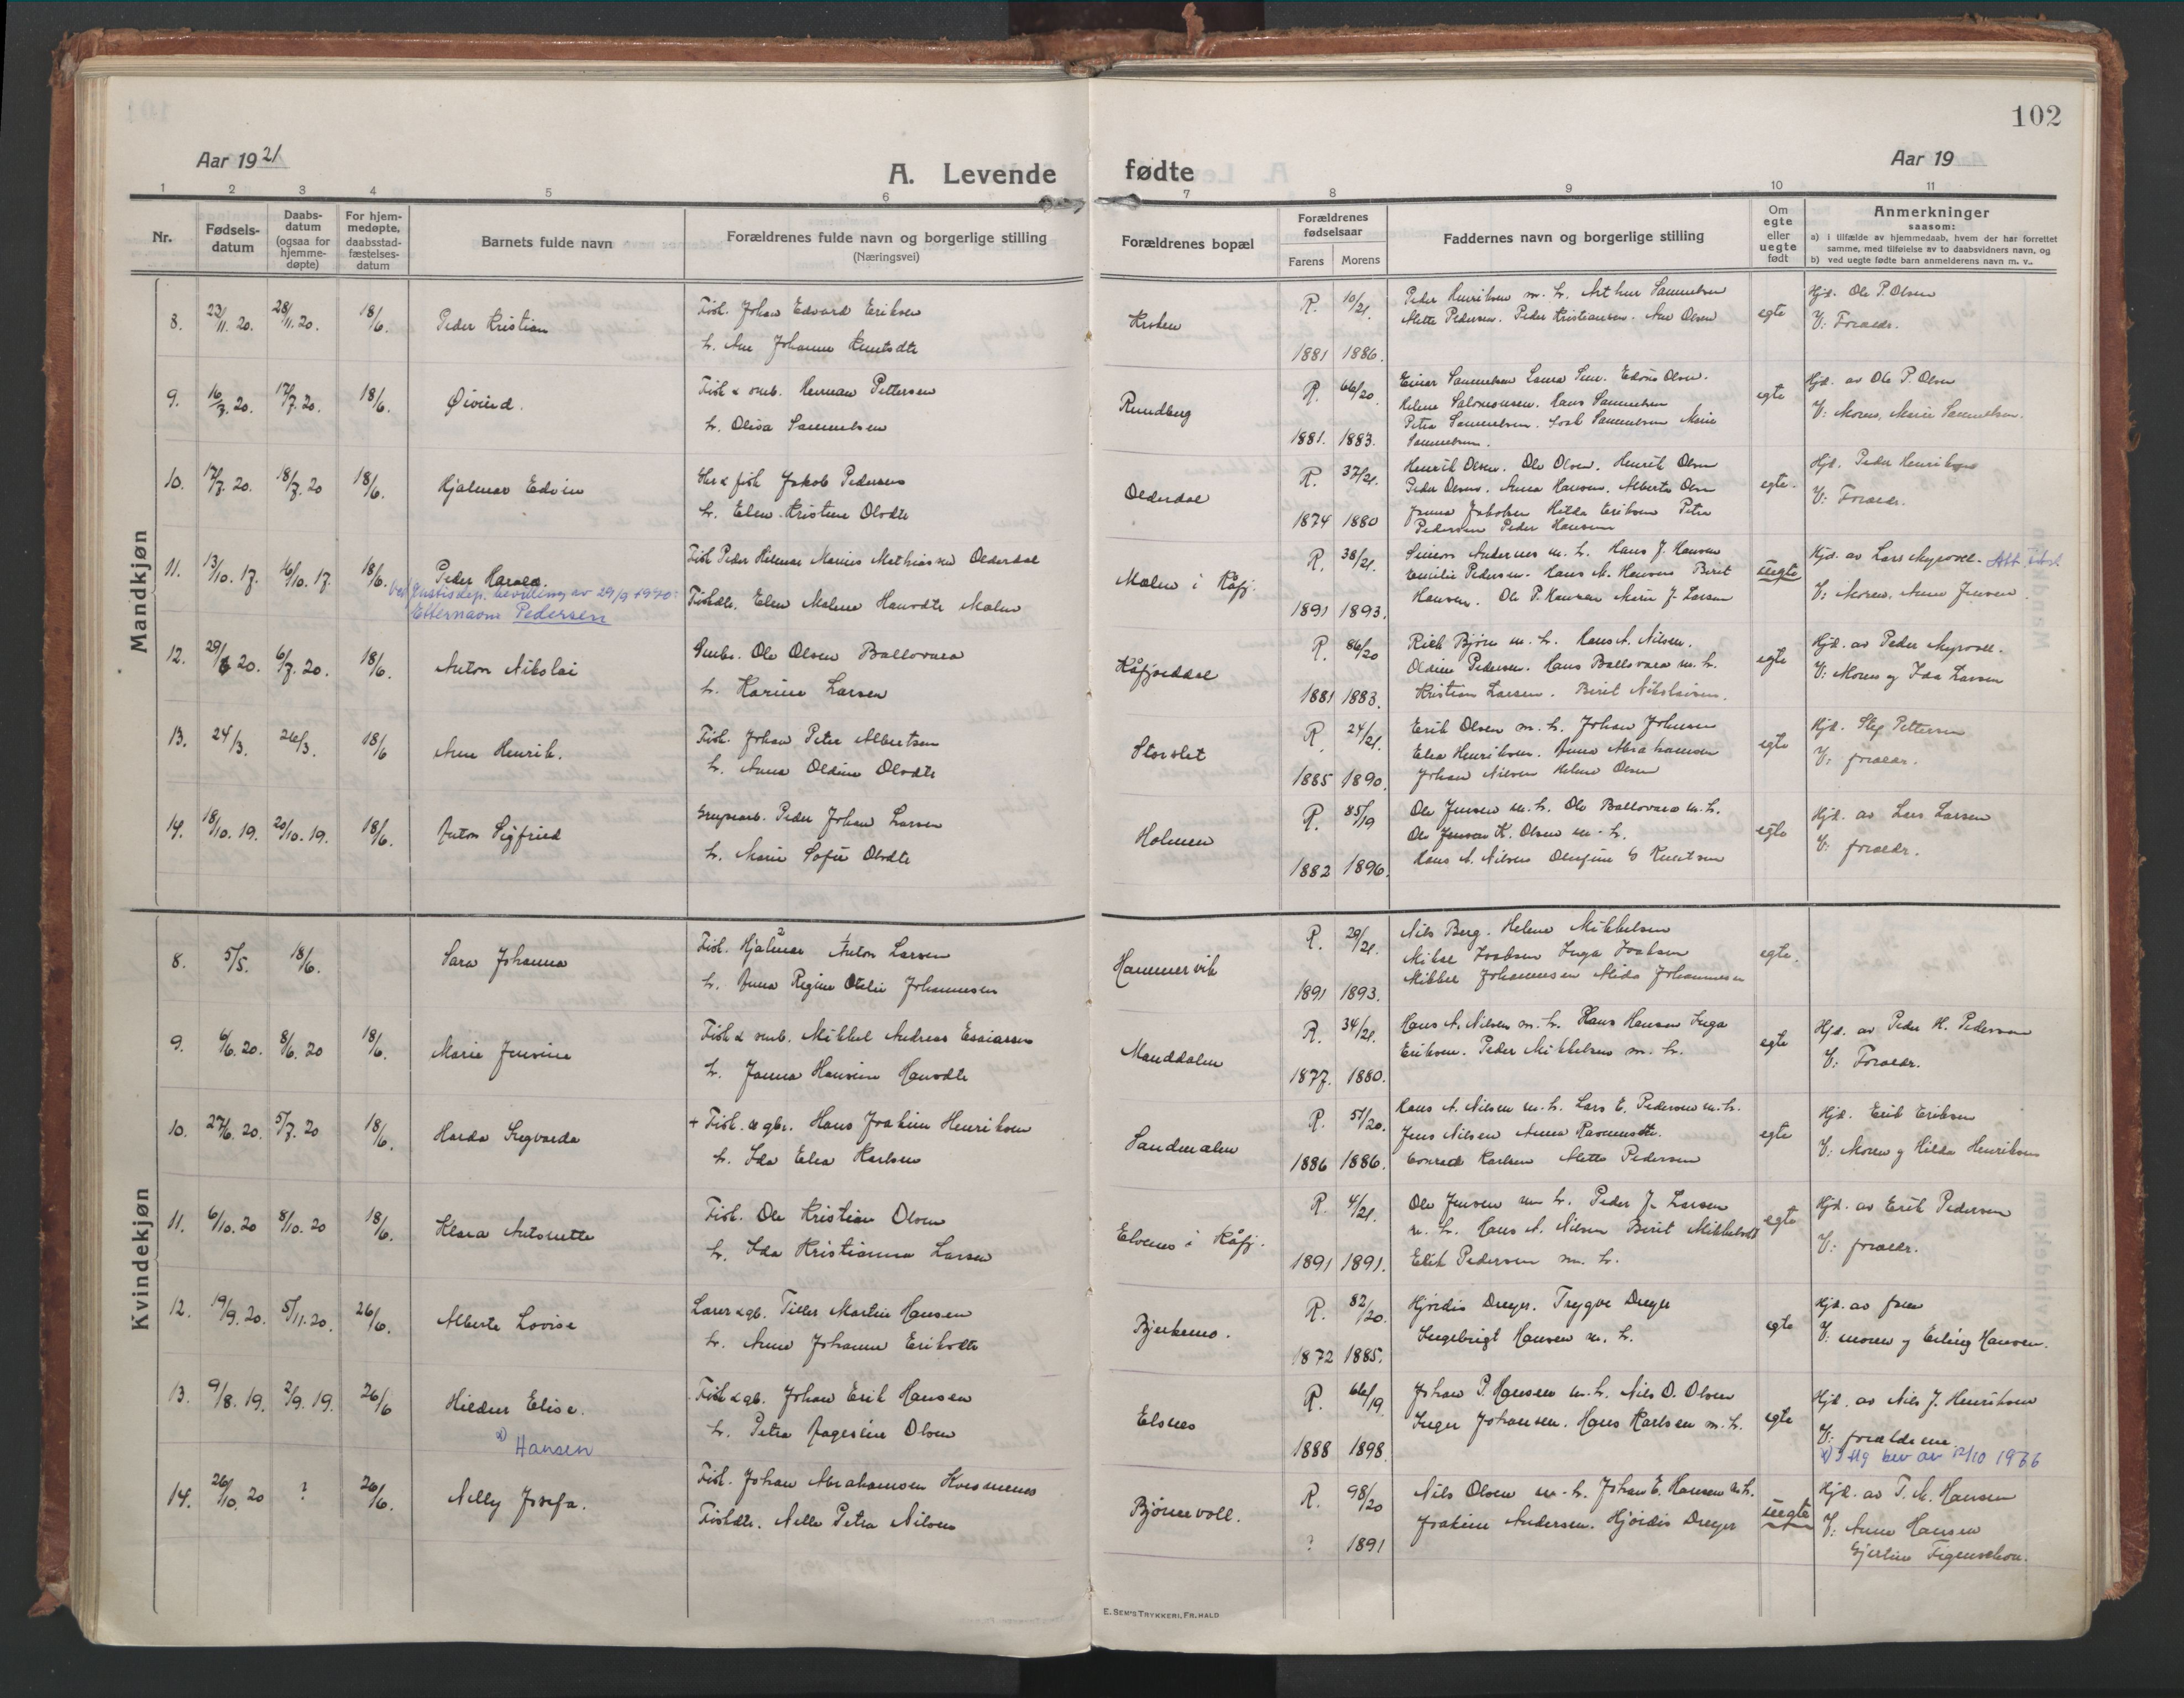 102
Aar 1921
A. Levende fødte
Aar 19
1 2 3 4 5 6 7 8 9 10 11
Nr.
Fødsels-
datum
Daabs-
datum
(ogsaa for
hjemme-
døpte)
For hjem-
medøpte,
daabsstad-
fæstelses-
datum
Barnets fulde navn
Forældrenes fulde navn og borgerlige stilling
(Næringsvei)
Forældrenes bopæl
Forældrenes
fødselsaar
Farens Morens
Faddernes navn og borgerlige stilling
Om
egte
eller
uegte
født
Anmerkninger
saasom:
a) i tilfælde av hjemmedaab, hvem der har forrettet
samme, med tilføielse av to daabsvidners navn, og
b) ved uegte fødte barn anmelderens navn m. v..
Mandkjøn
8. 22/11. 20. 28/11. 20. 18/6. Peder Kristian
Fisk. Johan Edvard Eriksen
h. Ane Johanne Knutsdtr
R. 10/21.
1881 1886.
Peder Henriksen m. h. Arthur Samuelsen
Mette Pedersen. Peder Kristiansen. Ane Olsen
egte
Hjd. Ole P. Olsen
V: Forældr.
9. 16/7. 20. 17/7. 20. 18/6. Øivind.
Fisk & smb. Herman Pettersen
h. Oliva Samuelsen
Rundberg
R. 66/20.
1881. 1883.
Einar Samuelsen Laura Sm. Edvin Olsen.
Helene Salomonsen. Hans Samuelsen
Petra Samuelsen. Samuelsen Marie
Samuelsen.
egte
Hjd. av Ole P. Olsen
V: Moren, Marie Samuelsen.
10. 17/7. 20. 18/7. 20 18/6. Hjalmar Edvin
Gbr & fisk Jakob Pedersen
h. Elen Kristine Olsdtr
Olderdal
R. 37/21.
1874 1880
Henrik Olsen. Ole Olsen. Henrik Olsen
Peder Olsen. Anna Hansen. Alberte Olsen
Janna Jakobsen Hilda Eriksen Petra
Pedersen Peder Hansen
egte.
Hjd. Peder Henriksen
V: Forældr.
11. 13/10. 17. 16/10. 17. 18/6. Peder Harald.
Ved Justisdep. bevilling av 29/9 1970:
Etternavn Pedersen
Fisk Peder Hilmar Marius Mathiassen Olderdal
Fiskdtr. Elen Malene Hansdtr Malen
Malen i Kåfj.
R. 38/21.
1891 1893.
Simon Andersen m. h. Hans J. Hansen
Emilie Pedersen. Hans M. Hansen Berit
Hansen. Ole P. Hansen Marie J. Larsen
uegte
Hjd. av Lars Myrvoll.
V: Moren, Anne Jensen.
12. 29/6 20. 6/7. 20. 18/6. Anton Nikolai
Smbr. Ole Olsen Ballovara
h. Karine Larsen
Kåfjorddal
R. 86/20
1881 1883.
Rich Bjørn m. h. Hans A. Nilsen.
Oldine Pedersen. Hans Ballovara m. h.
Kristian Larsen. Berit Nikolaisen.
egte
Hjd. av Peder Myrvoll.
V: Moren og Ida Larsen
13. 24/3. 26/3. 18/6 Arne Henrik.
Fisk. Johan Peter Albertsen
h. Anna Oldine Olsdtr
Storslet
R. 24/21.
1885 1890.
Erik Olsen m. h. Johan Johnsen
Elea Henriksen. Anna Abrahamsen
Johan Nilsen Helene Olsen
egte
Hjd. Sig Pettersen
V: forældr.
14. 18/10. 19. 20/10. 19. 18/6. Anton Sigfried
Grubearb. Peder Johan Larsen
h. Marie Sofie Olsdtr
Holmen
R. 85/19
1882 1896.
Ole Jensen m. h. Ole Ballovara m. h.
Ole K. Olsen m. h.
Hans A. Nilsen Olufine Knutsen
egte
Hjd. av Lars Larsen
V: forældr.
Kvindekjøn
8. 5/5. 18/6. Sara Johanna
Fisk. Hjalmar Anton Larsen
h. Anna Regine Otelie Johannesen
Hammervik
R. 29/21.
1891 1893.
Nils Berg. Helene Mikkelsen
Mikal Isaksen Inga Isaksen
Mikkel Johannesen Alida Johannesen
egte.
9. 6/6. 20. 8/6. 20 18/6. Marie Jensine
Fisk & smb. Mikkel Andreas Esaiassen
h. Janna Hansine Hansdtr
Manddalen
R. 34/21.
1877. 1880.
Hans A. Nilsen m. h. Hans Hansen Inga
Eriksen. Peder Mikkelsen m. h.
egte
Hjd. av Peder H. Pedersen
V: Forældr.
10. 27/6. 20. 5/7. 20 18/6. Harda Ingvarda
+ Fisk. & gbr. Hans Joakim Henriksen
h. Ida Elea Karlsen
Sandmalen
R. 51/20.
1886 1886.
Hans A. Nilsen m. h. Lars E. Pedersen m. h.
Jens Nilsen Anna Rasmusdtr.
Konrad Karlsen Mette Pedersen
egte
Hjd. Erik Eriksen
V: Moren og Hilda Henriksen
11. 6/10. 20 8/10. 20 18/6. Klara Antonette
Fisk. Ole Kristian Olsen
h. Ida Kristianna Larsen
Elvenes i Kåfj.
R. 4/21.
1891 1891.
Ole Jensen m h. Peder J. Larsen
m. h. Hans A. Nilsen Berit Mikkelsdt
Erik Pedersen m. h.
egte
Hjd. av Erik Pedersen
V: forældr.
12. 19/9. 20. 5/11. 20. 26/6. Alberte Lovise
Lærer & gb. Tiller Martin Hansen
h. Anne Johanne Eriksdtr
Bjerkemo.
R. 82/20.
1872 1885.
Hjørdis Dreyer. Trygve Dreyer
Ingebrigt Hansen m. h.
egte
Hjd. av faren
V: moren og Erling Hansen.
13. 9/8. 19. 2/9. 19. 26/6 Hildur Elise.
x) Hansen
Fisk & gb. Johan Erik Hansen
h. Petra Olsen
Elsnes
R. 66/19.
1888 1898.
Johan P. Hansen m. h. Nils O. Olsen
Inger Johansen. Hans Karlsen m. h.
egte
Hjd. av Nils J. Henriksen
V: forældrene
x) bev av 12/10 1966
14. 26/10. 20 ? 26/6. Nelly Josefa.
Fisk. Johan Abrahamsen Kvesmenes
Fiskdtr. Nelle Petra Nilsen
Bjørnevoll.
R. 98/20
? 1891
Nils Olsen m. h. Johan E. Hansen m. h.
Joakim Andersen. Hjørdis Dreyer
uegte
Hjd. av T. M. Hansen
V: Anne Hansen
Gjertine Figenschou.
E. SEM'S TRYKKERI, FR. HALD